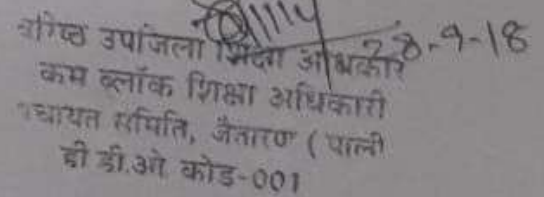 28-9-18
वरिष्ठ उपजिला शिक्षा अधिकारी
कम ब्लॉक शिक्षा अधिकारी
पंचायत समिति, जैतारण (पाली
डी डी.ओ. कोड-001